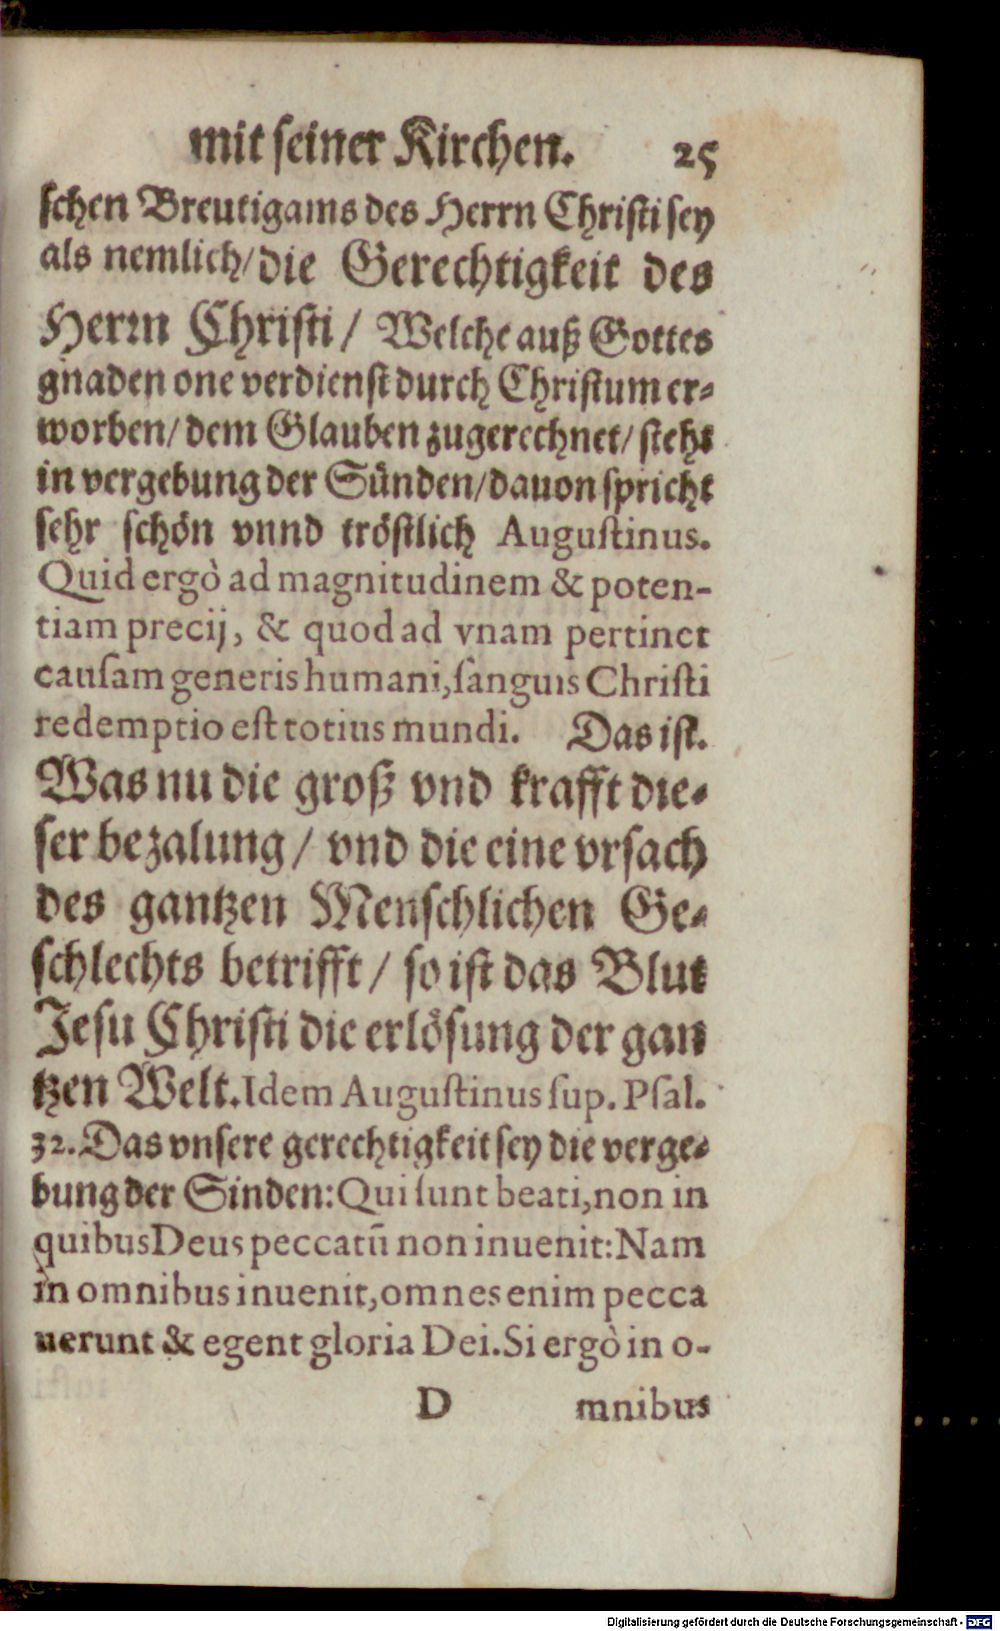 mit seiner Kirchen. 25
schen Breutigams des Herrn Christi sey
als nemlich/ die Gerechtigkeit des
Herrn Christi / Welche auß Gottes
gnaden one verdienst durch Christum er-
worben/ dem Glauben zugerechnet/ steht
in vergebung der Sünden/ dauon spricht
sehr schön vnnd tröstlich Augustinus.
Quid ergò ad magnitudinem & poten-
tiam precij, & quod ad vnam pertinet
causam generis humani, sanguis Christi
redemptio est totius mundi. Das ist.
Was nu die groß vnd krafft die-
ser bezalung / vnd die eine vrsach
des gantzen Menschlichen Ge-
schlechts betrifft / so ist das Blut
Jesu Christi die erlösung der gan
tzen Welt. Idem Augustinus sup. Psal.
32. Das vnsere gerechtigkeit sey die verge-
bung der Sinden: Qui sunt beati, non in
quibus Deus peccatū non inuenit: Nam
in omnibus inuenit, omnes enim pecca
uerunt & egent gloria Dei. Si ergò in o-
D mnibus
Digitalisierung gefördert durch die Deutsche Forschungsgemeinschaft - DFG